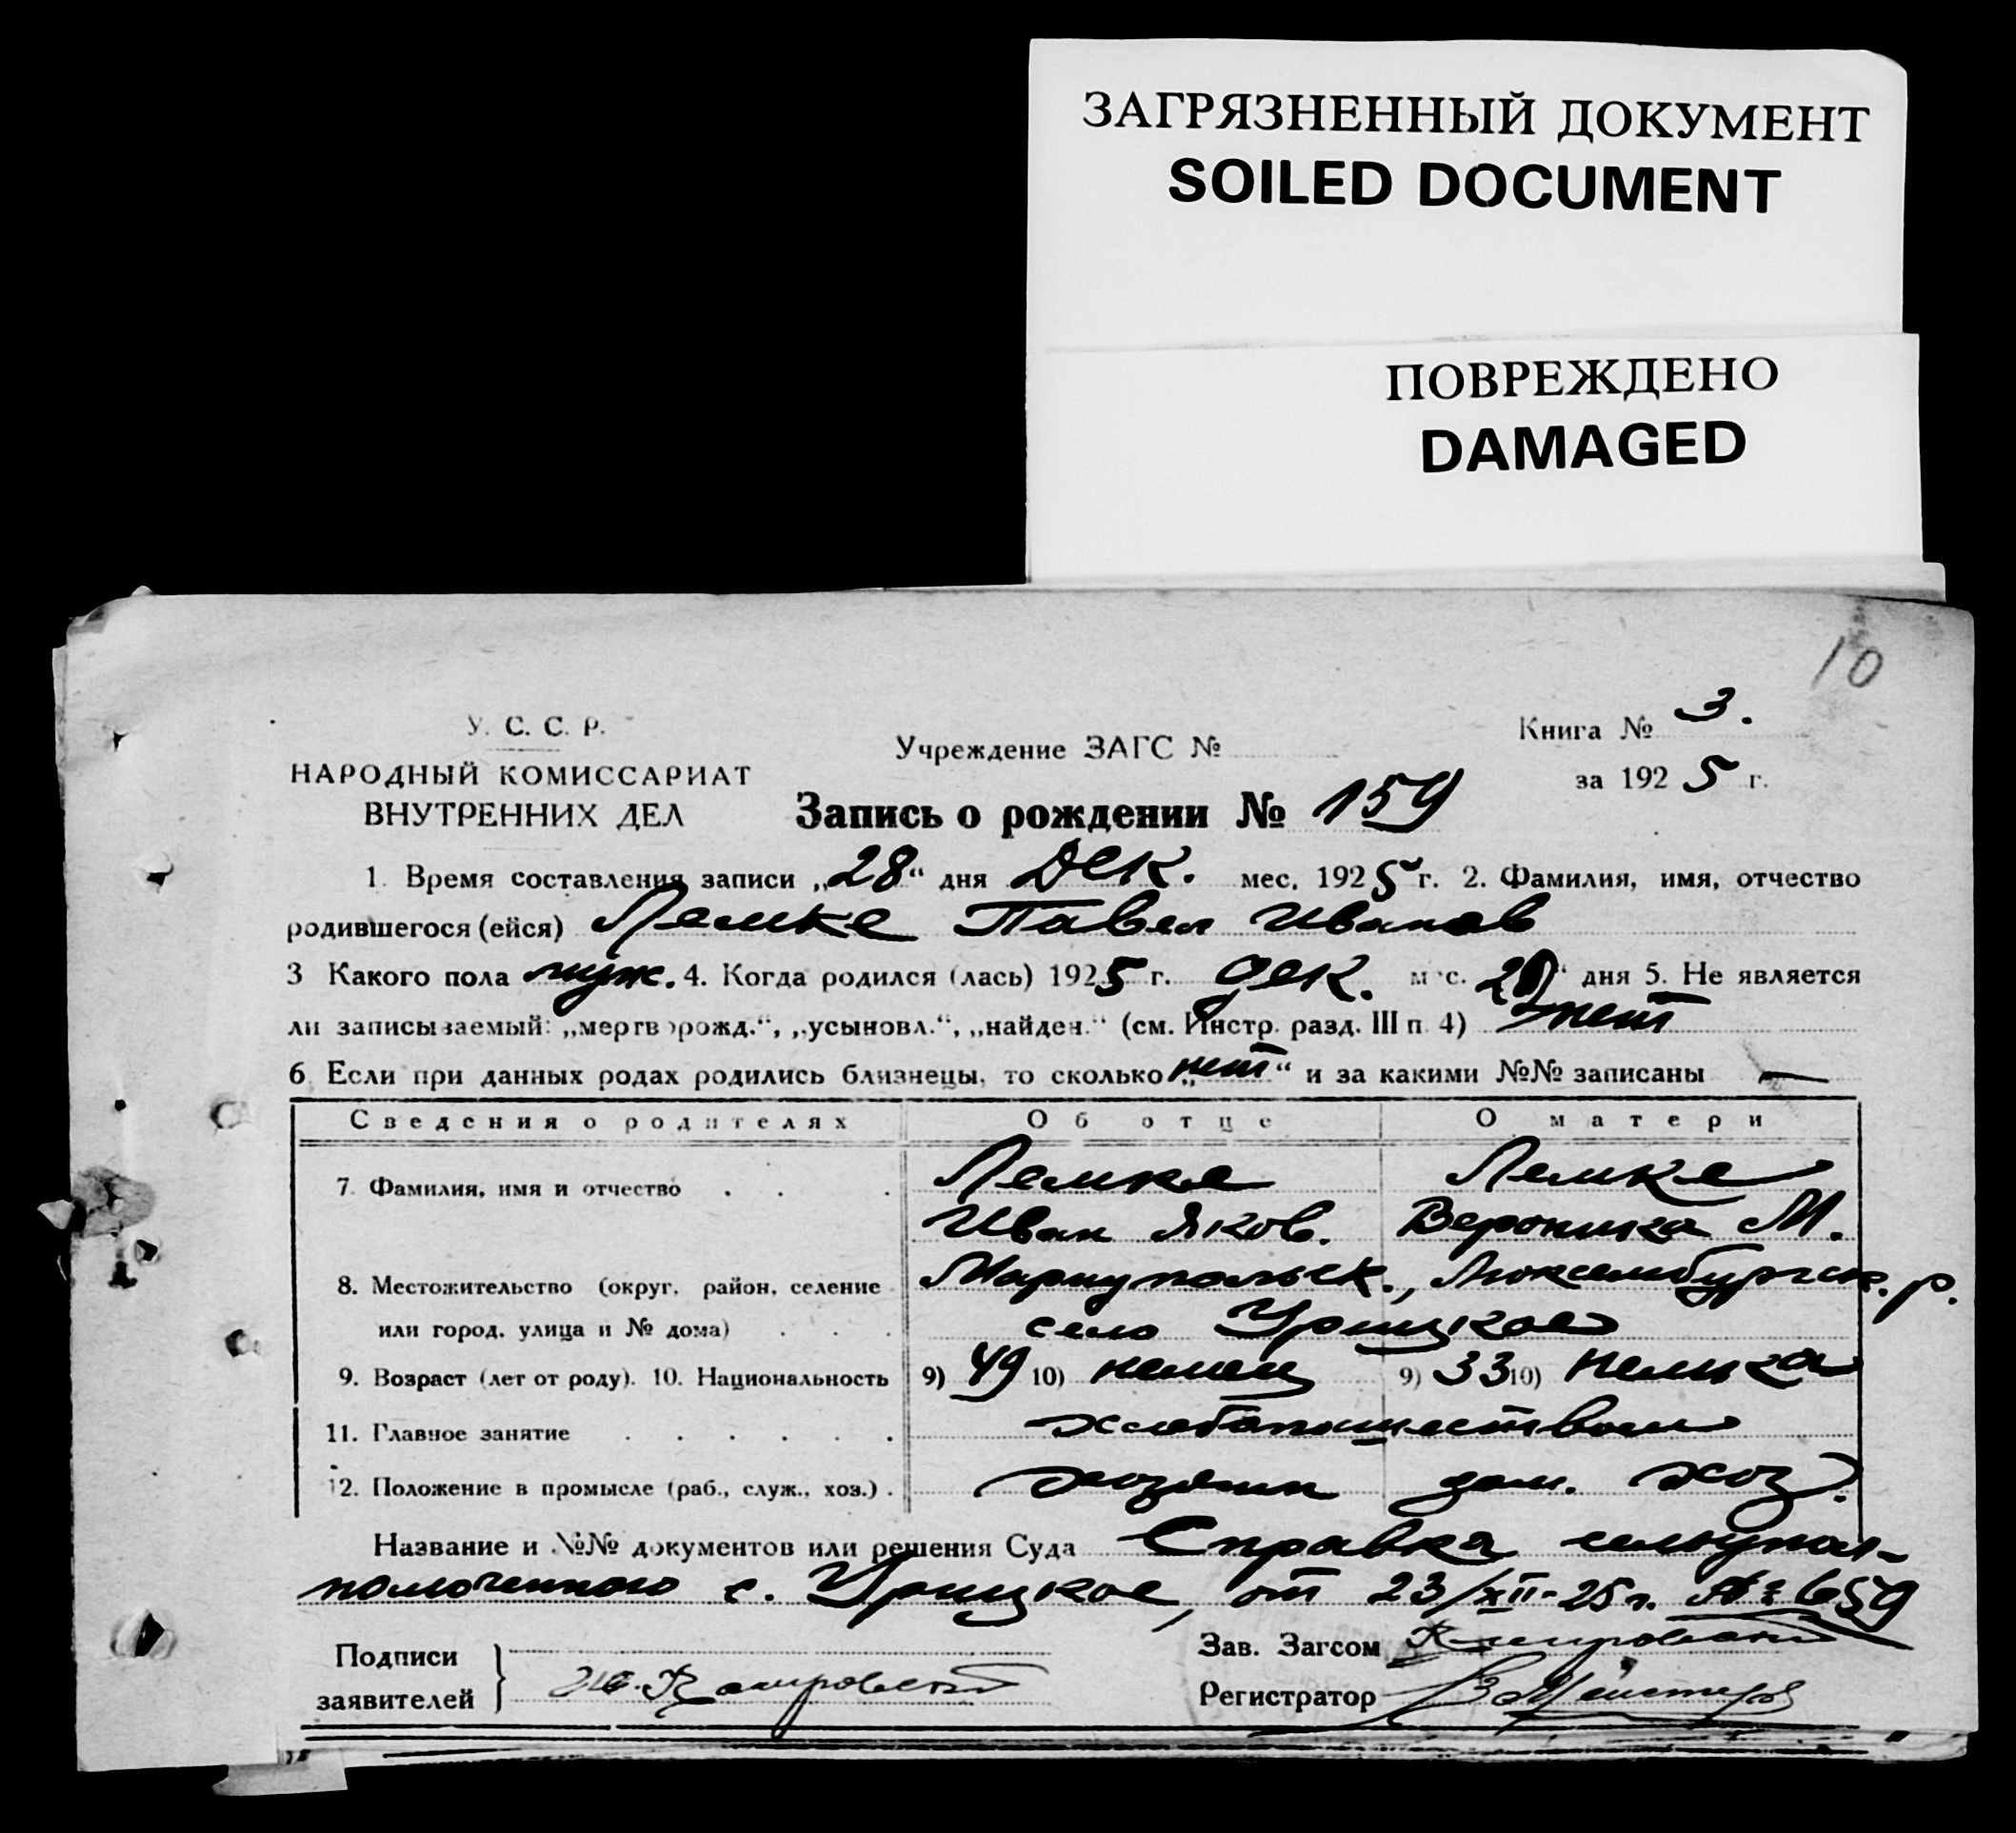 ЗАГРЯЗНЕННЫЙ ДОКУМЕНТ
SOILED DOCUMENT
ПОВРЕЖДЕНО
DAMAGED
10
У. С. С. Р.
НАРОДНЫЙ КОМИССАРИАТ
ВНУТРЕННИХ ДЕЛ
Учреждение ЗАГС №
Книга № 3.
за 1925 г.
Запись о рождении № 159
1. Время составления записи „28“ дня Дек. мес. 1925 г. 2. Фамилия, имя, отчество
родившегося (ейся) Лемке Павел Иванов
3 Какого пола муж. 4. Когда родился (лась) 1925 г. дек. мес. дня 5. Не является
ли записываемый: „мертворожд.“, „усыновл.“, „найден.“ (см. Инстр. разд. III п. 4) нет
6 Если при данных родах родились близнецы, то сколько „нет“ и за какими №№ записаны —
Сведения о родителях Об отце О матери
7. Фамилия, имя и отчество . . . Лемке Лемке
Иван Яков. Вероника М.
8. Местожительство (округ, район, селение Мариупольск., Люксембургск. р.
или город, улица и № дома) . . . село Урицкое
9. Возраст (лет от роду). 10. Национальность 9) 49 10) немец 9) 33 10) немка
11. Главное занятие . . . . . . хлебопашеством
12. Положение в промысле (раб., служ., хоз.) . хозяин дом. хоз.
Название и №№ документов или решения Суда Справка сельупол-
номоченного с. Урицкое, от 23/XII-25 г. № 659
Подписи
заявителей
Зав. Загсом
Регистратор